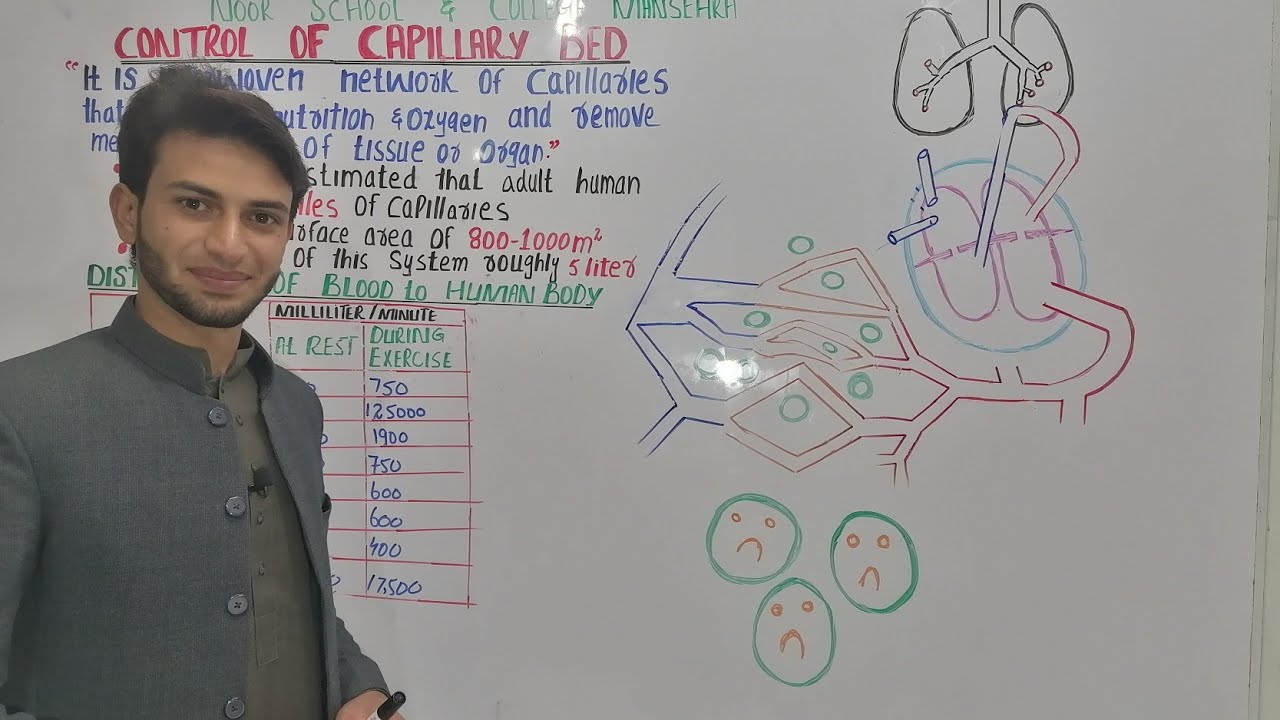 NOOR SCHOOL & COLLEGE MANSEHRA
CONTROL OF CAPILLARY BED
"It IS woven network of Capillaries
that nutrition & Oxygen and remove
me of tissue or Organ."
stimated that adult human
iles Of Capillaries
urface area of 800-1000m²
of this System roughly 5 liter
DIST OF BLOOD to HUMAN BODY
MILLILITER/MINUTE
AL REST DURING EXERCISE
750
125000
1900
750
600
600
400
17,500